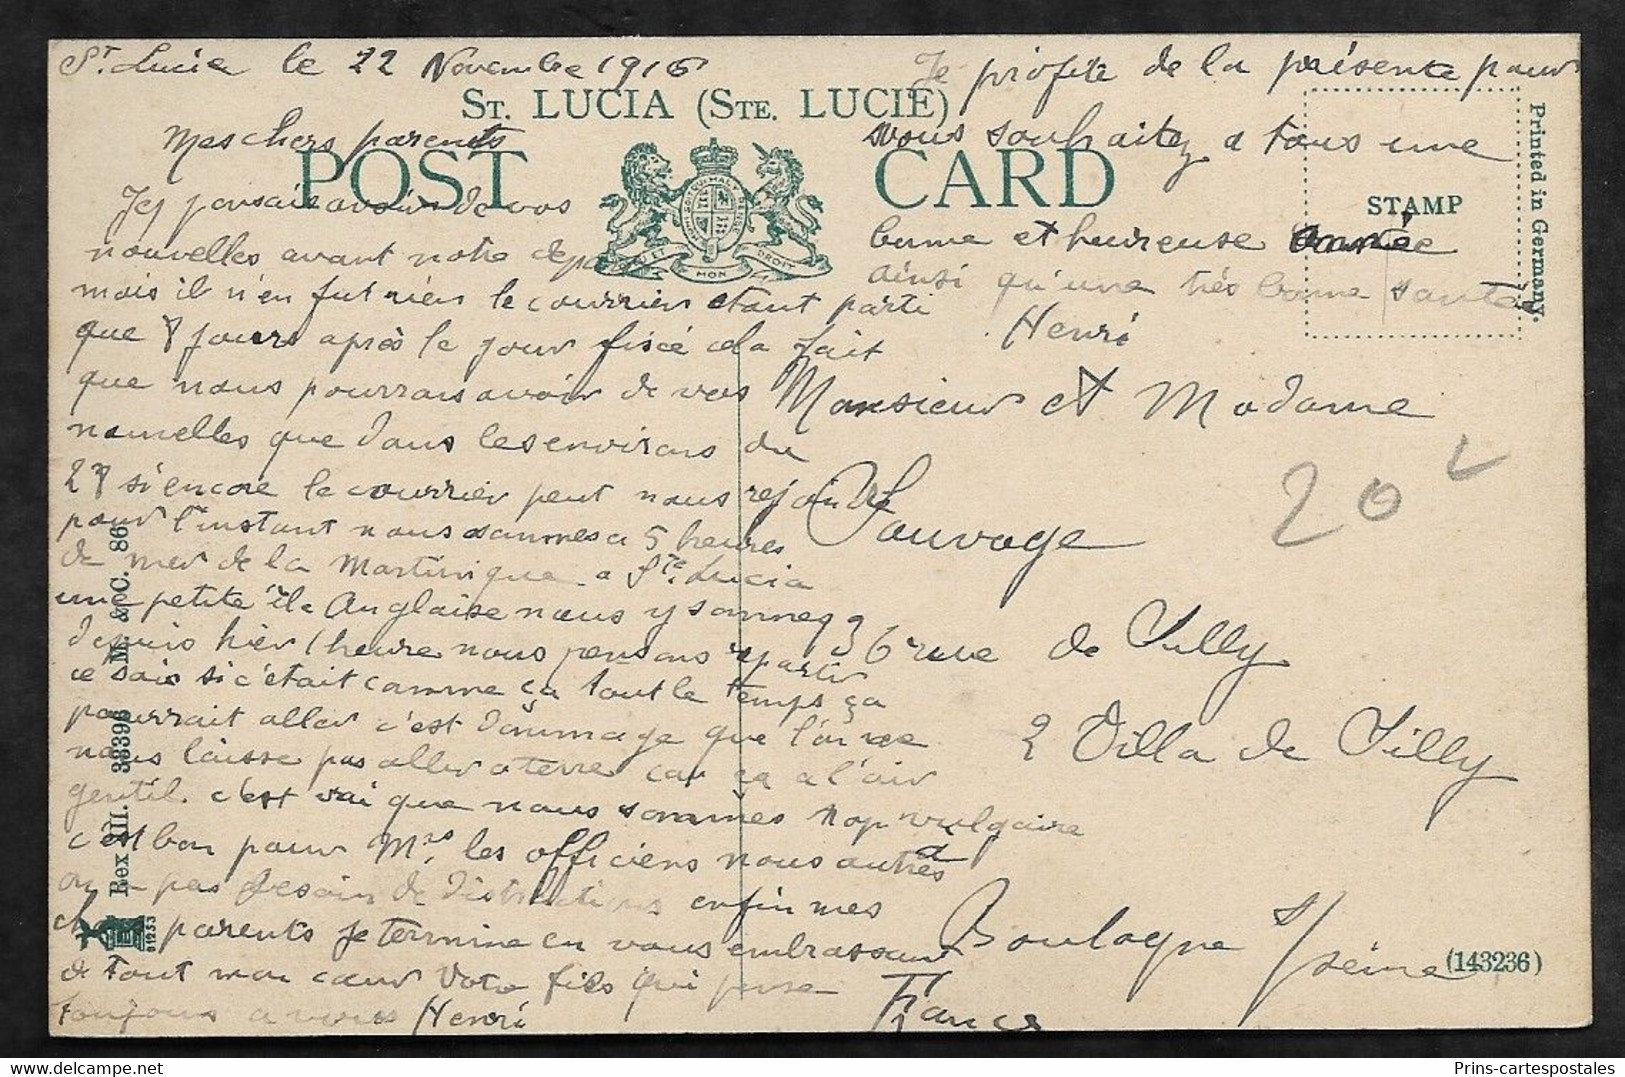 St. Lucie le 22 Novembre 1916
ST. LUCIA (STE. LUCIE)
POST CARD
Mes chers parents
Je pensais avoir de vos
nouvelles avant notre départ
mais il n'en fut rien le courrier etant parti
que 8 jours après le jour fixé cela fait
que nous pourrons avoir de vos
nouvelles que dans les environs du
28 si encore le courrier peut nous rejoindre
pour l'instant nous sommes a 5 heures
de mer de la Martinique a Ste. Lucia
une petite île Anglaise nous y sommes
depuis hier 1 heure nous pensons repartir
ce soir si c'était comme ça tout le temps ça
pourrait aller c'est dommage que l'on ne
nous laisse pas aller a terre car ça a l'air
gentil. c'est vrai que nous sommes trop vulgaire
c'est bon pour Mrs. les officiers nous autres
on a pas besoin de distractions enfin mes
chers parents je termine en vous embrassant
de tout mon cœur Votre fils qui pense
toujours a vous Henri
Je profite de la présente pour
vous souhaitez a tous une
bonne et heureuse année
ainsi qu'une très bonne santée
Henri
STAMP
Printed in Germany.
Monsieur et Madame
Sauvage
36 rue de Silly
2 Villa de Silly
a
Boulogne s/seine
France
20
(143236)
Rex XII. 33396 M. & C. 86
DIEU ET MON DROIT
Prins-cartespostales